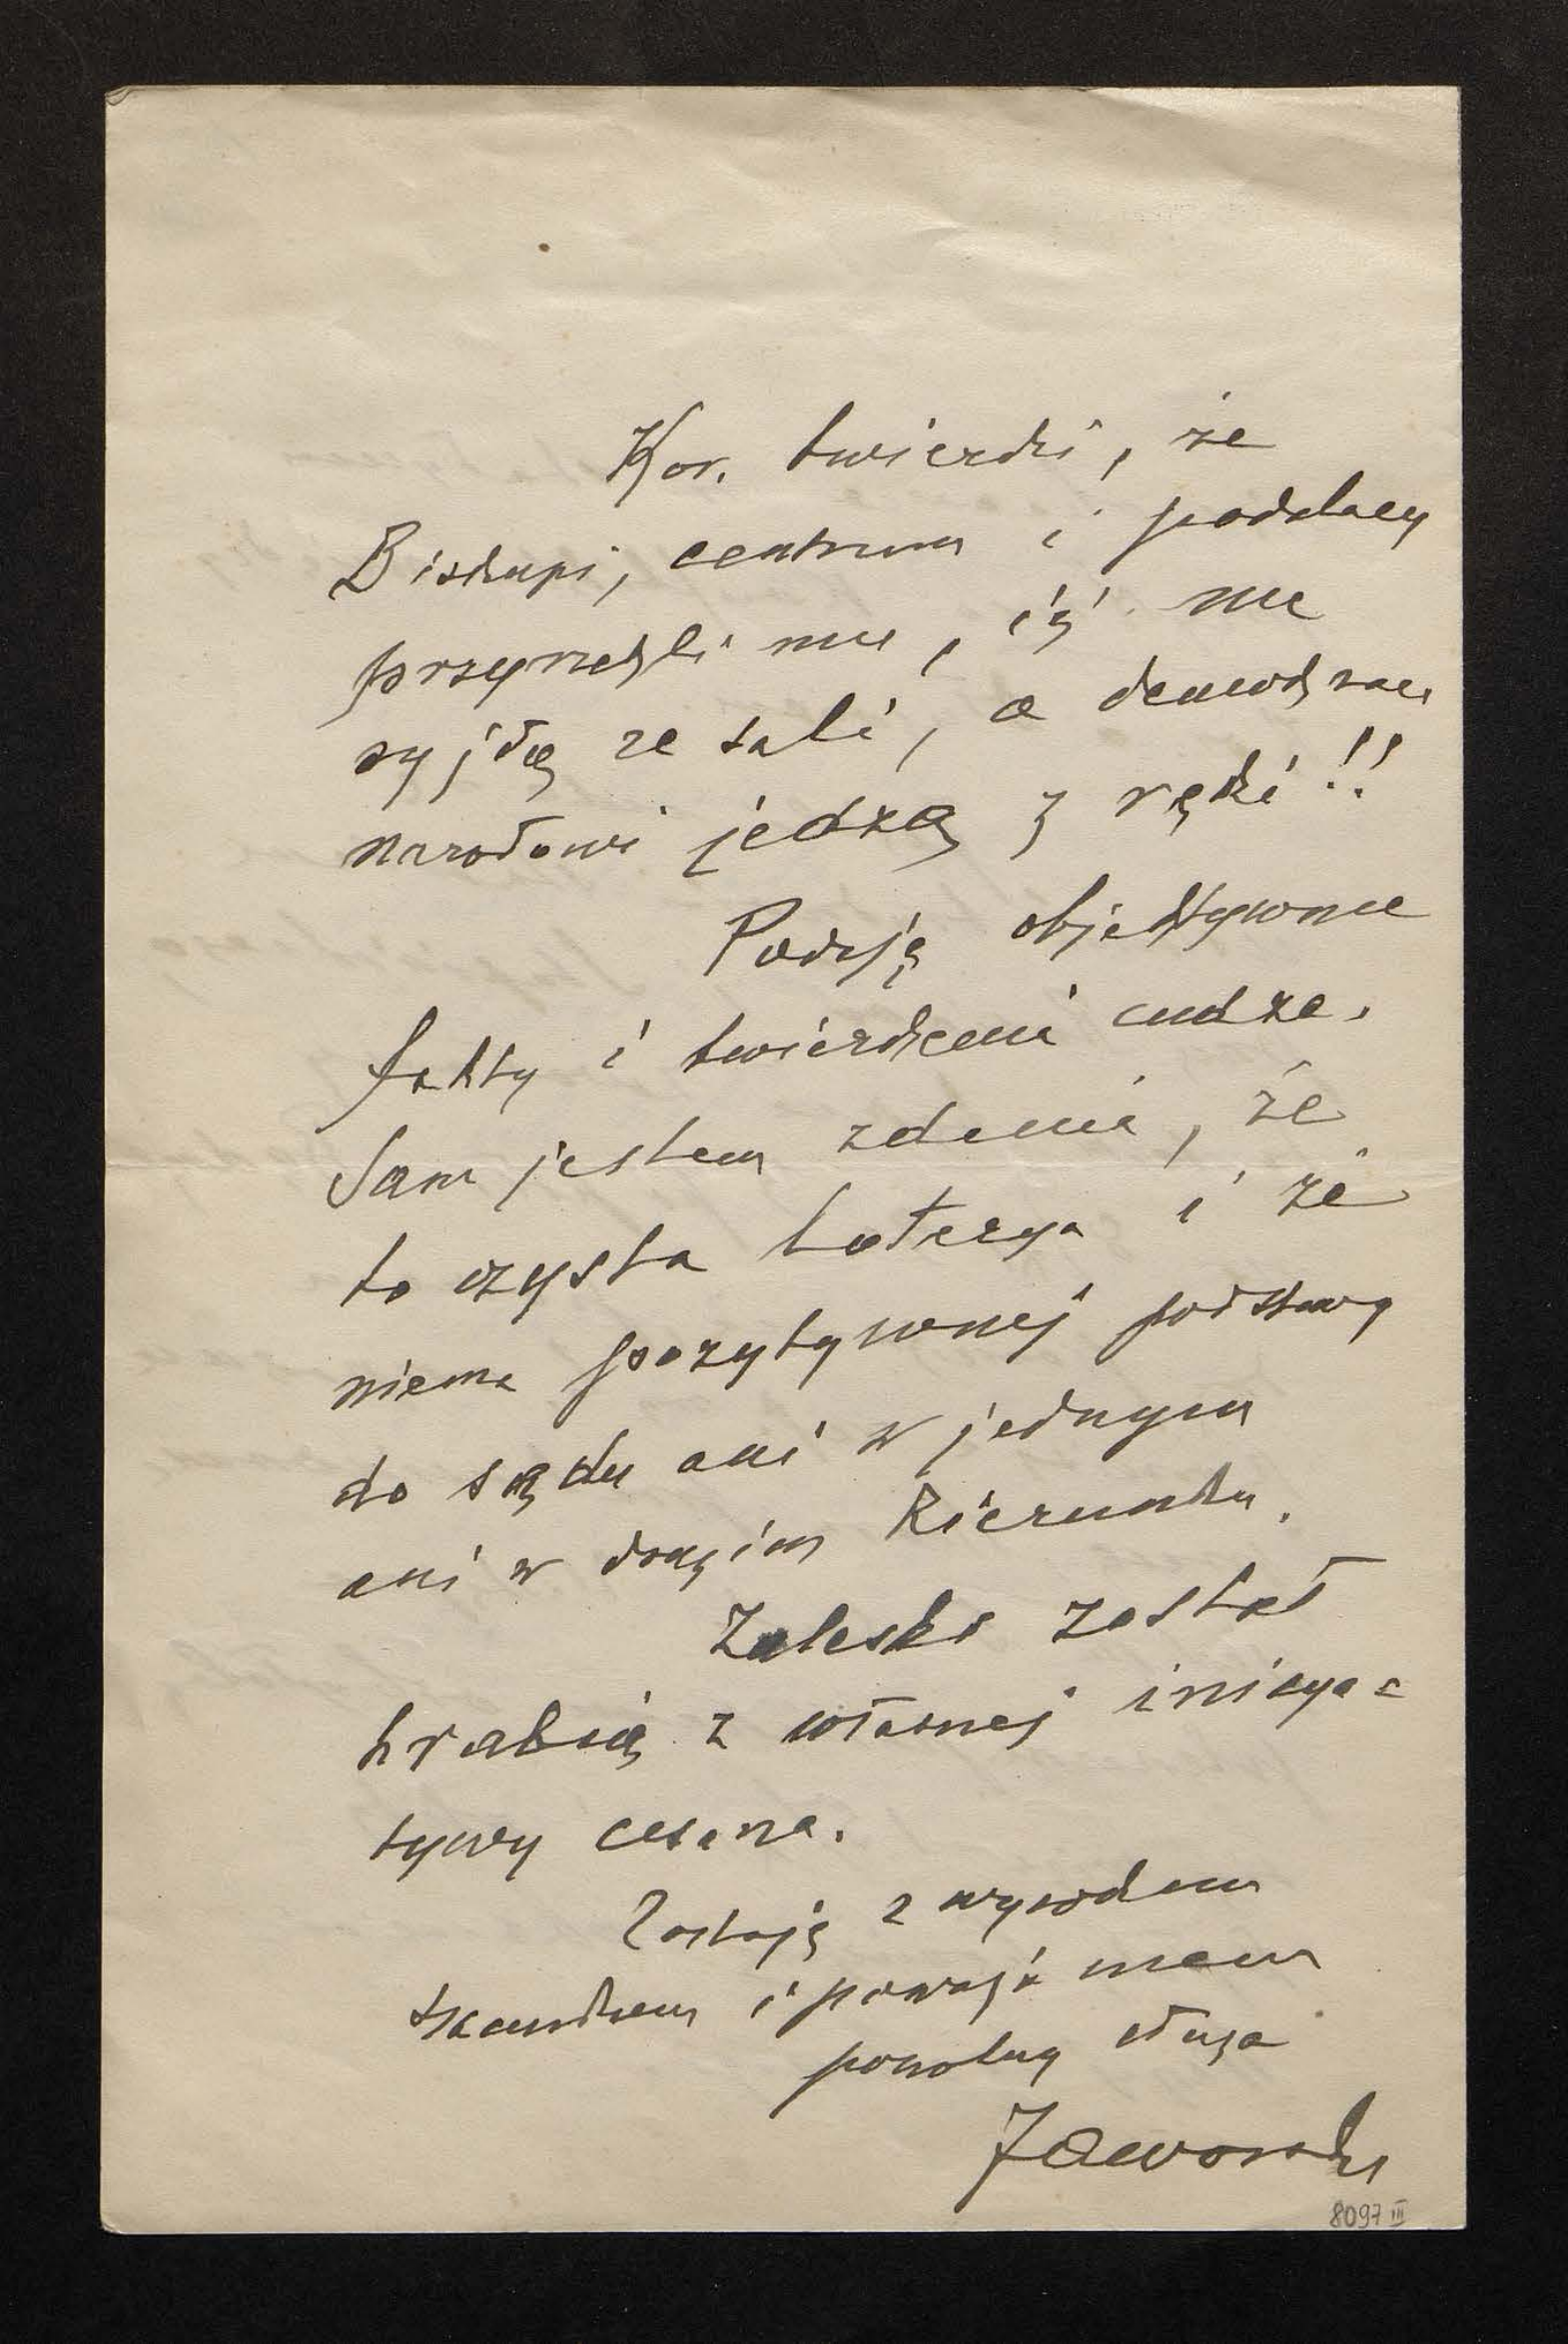 Kor. twierdzi, że
Biskupi, centrum i podolacy
przyrzekli mu, iż nie
wyjdą ze sali, a demokraci
narodowi jedzą z ręki!!
Podaję objektywnie
fakty i twierdzenia cudze.
Sam jestem zdania, że
to czysta loterya i że
niema pozytywnej podstawy
do sądu ani w jednym
ani w drugim kierunku.
Zaleski został
hrabią z własnej inicya=
tywy cesarza.
Zostaję z wysokiem
szacunkiem i poważaniem
powolny sługa
Jaworski
8097 III